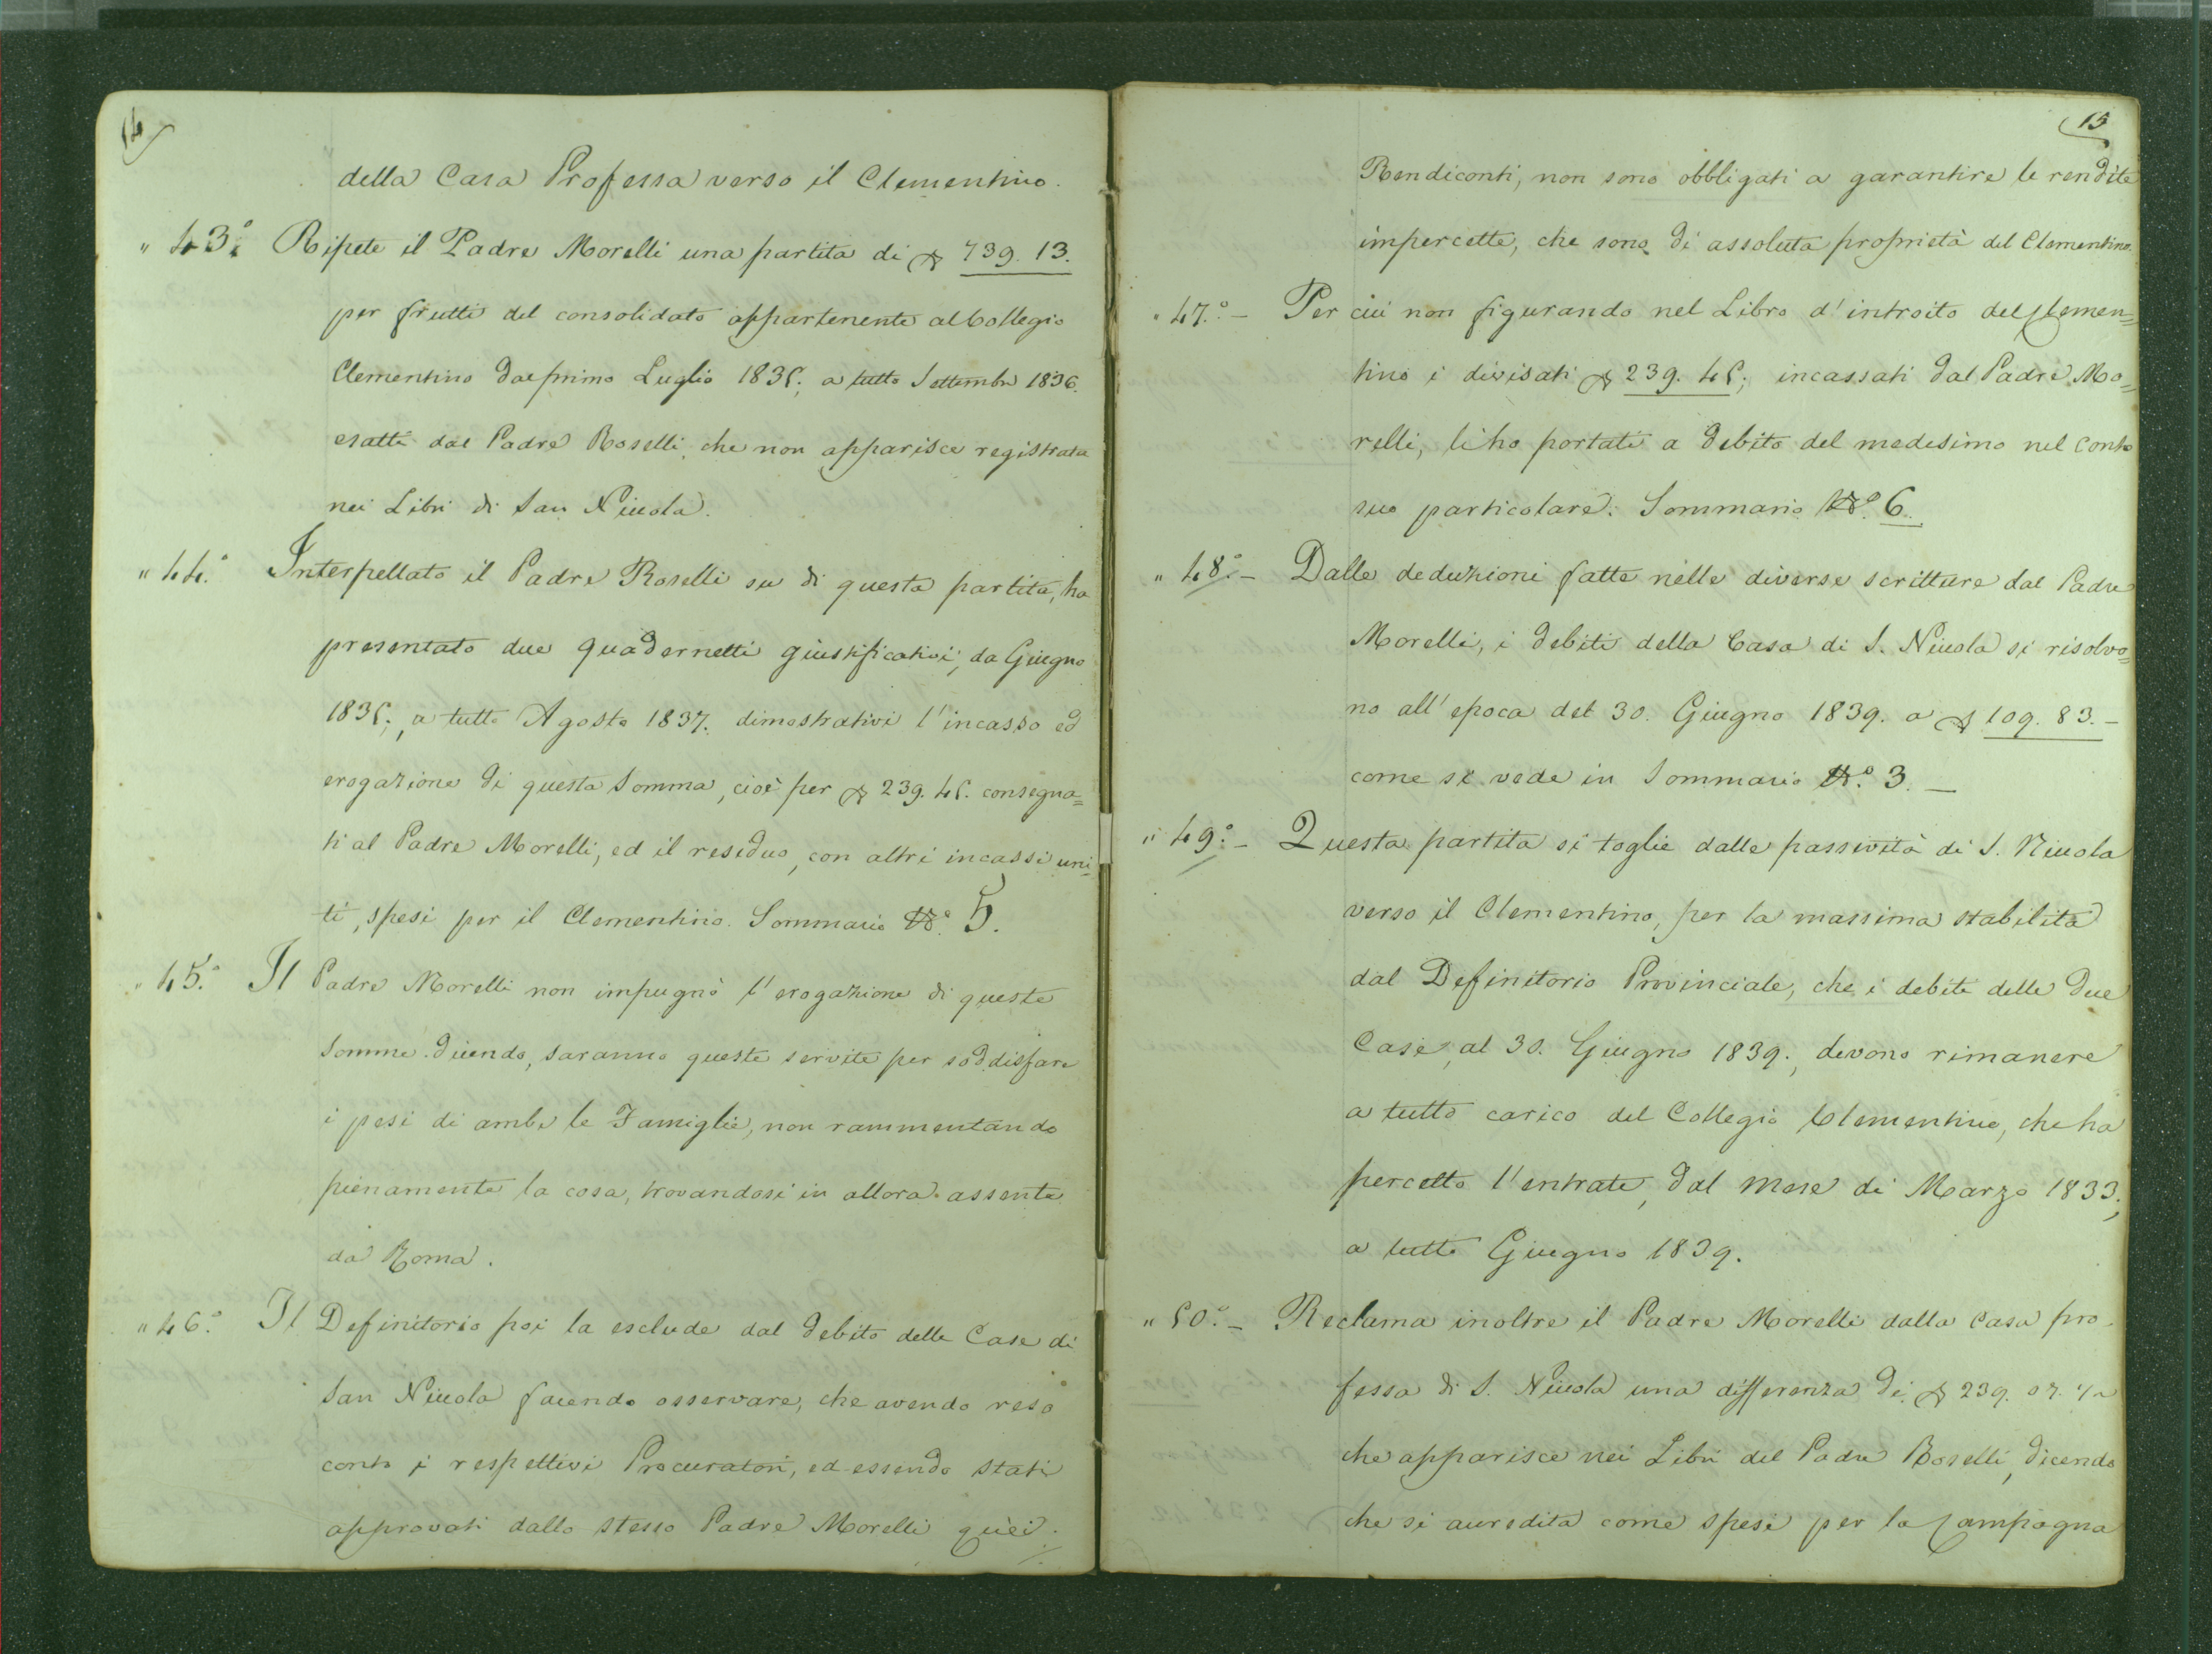 14
della Casa Professa verso il Clementino.
" 43.° Ripete il Padre Morelli una partita di 739. 13.
per frutti del consolidato appartenente al Collegio
Clementino dal primo Luglio 1835; a tutto Settembre 1836.
esatti dal Padre Roselli, che non apparisce registrata
nei Libri di San Niccola.
" 44.° Interpellato il Padre Roselli su di questa partita, ha
presentato due quadernetti giustificativi, da Giugno
1835; a tutto Agosto 1837. dimostrativi l'incasso ed
erogazione di questa Somma, cioè per 239. 45. consegna=
ti al Padre Morelli, ed il residuo, con altri incassi uni=
ti, spesi per il Clementino. Sommario N.° 5.
" 45.° Il Padre Morelli non impugnò l'erogazione di queste
Somme dicendo, saranno queste servite per soddisfare
i pesi di ambe le Famiglie, non rammentando
pienamente la cosa, trovandosi in allora assente
da Roma.
" 46.° Il Definitorio poi la esclude dal debito delle Case di
San Niccola facendo osservare, che avendo reso
conto i respettivi Procuratori, ed essendo stati
approvati dallo stesso Padre Morelli quei.
15
Rendiconti, non sono obbligati a garantire le rendite
impercette, che sono di assoluta proprietà del Clementino.
" 47.° - Per cui non figurando nel Libro d'introito del Clemen=
tino i divisati 239. 45; incassati dal Padre Mo=
relli, li ho portati a debito del medesimo nel conto
suo particolare. Sommario N.° 6.
" 48.° - Dalle deduzioni fatte nelle diverse scritture dal Padre
Morelli, i debiti della Casa di S. Niccola si risolvo=
no all'epoca del 30. Giugno 1839. a 109. 83. -
come si vede in Sommario N.° 3. -
" 49.° - Questa partita si toglie dalle passività di S. Niccola
verso il Clementino, per la massima stabilita
dal Definitorio Provinciale, che i debiti delle due
Case, al 30. Giugno 1839., devono rimanere
a tutto carico del Collegio Clementino, che ha
percetto l'entrate, dal mese di Marzo 1833;
a tutto Giugno 1839.
" 50.° - Reclama inoltre il Padre Morelli dalla Casa pro=
fessa di S. Niccola una differenza di 239. 07. ½
che apparisce nei Libri del Padre Roselli, dicendo
che si accredita come spesi per la Campagna